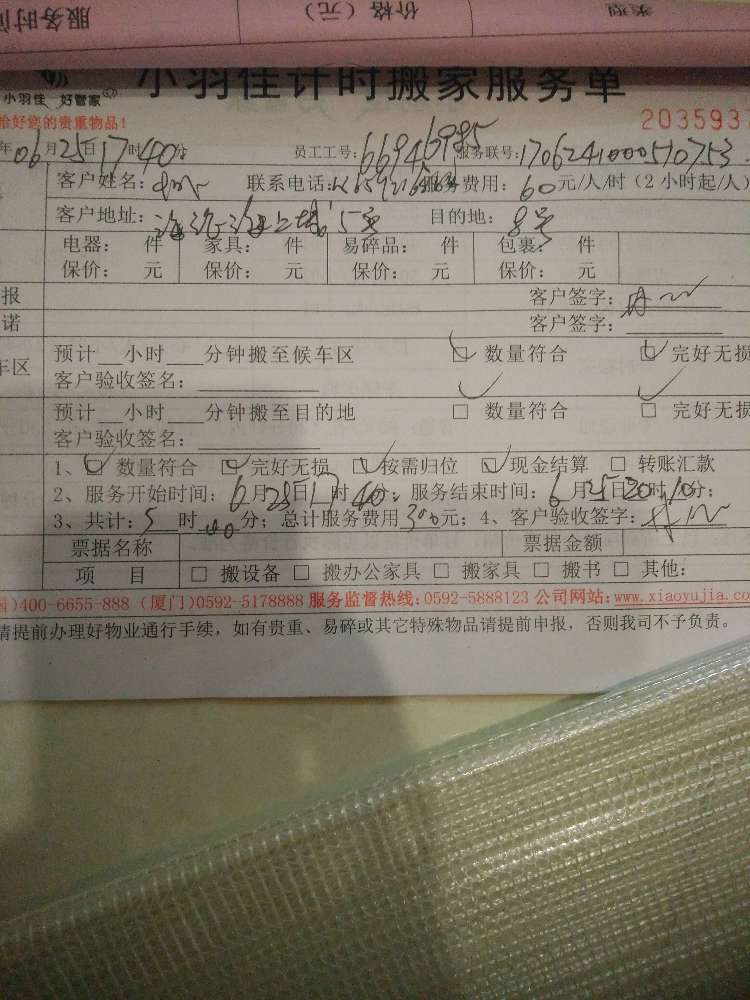 服务时间 价格（元） 类型
小羽佳计时搬家服务单
小羽佳 好管家
给好您的贵重物品！ 2035937
年06月25日17时40分 员工工号：66946985 服务联号：170624100051075
客户姓名： 联系电话： 服务费用：60元/人/时（2小时起/人）
客户地址：海沧海上城5号 目的地：8号
电器： 件 家具： 件 易碎品： 件 包裹： 件
保价： 元 保价： 元 保价： 元 保价： 元
报 客户签字：
诺 客户签字：
车区 预计__小时___分钟搬至候车区 数量符合 完好无损
客户验收签名：
预计__小时___分钟搬至目的地 □ 数量符合 □ 完好无损
客户验收签名：
1、☑ 数量符合 ☑ 完好无损 ☑ 按需归位 ☑ 现金结算 □ 转账汇款
2、服务开始时间：6月25日17时40分；服务结束时间：6月25日20时10分；
3、共计：5时00分；总计服务费用300元；4、客户验收签字：
票据名称 票据金额
项 目 □ 搬设备 □ 搬办公家具 □ 搬家具 □ 搬书 □ 其他：
国)400-6655-888 (厦门)0592-5178888 服务监督热线:0592-5888123 公司网站:www.xiaoyujia.co
请提前办理好物业通行手续，如有贵重、易碎或其它特殊物品请提前申报，否则我司不予负责。